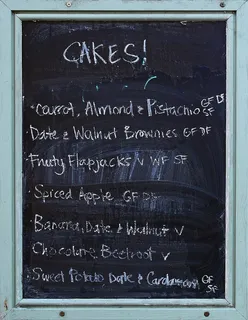 CAKES!
Carrot, Almond & Pistachio GF DF SF
Date & Walnut Brownies GF DF
Fruity Flapjacks V WF SF
Spiced Apple GF DF
Banana, Date & Walnut V
Chocolate Beetroot V
Sweet Potato Date & Cardamom GF SF